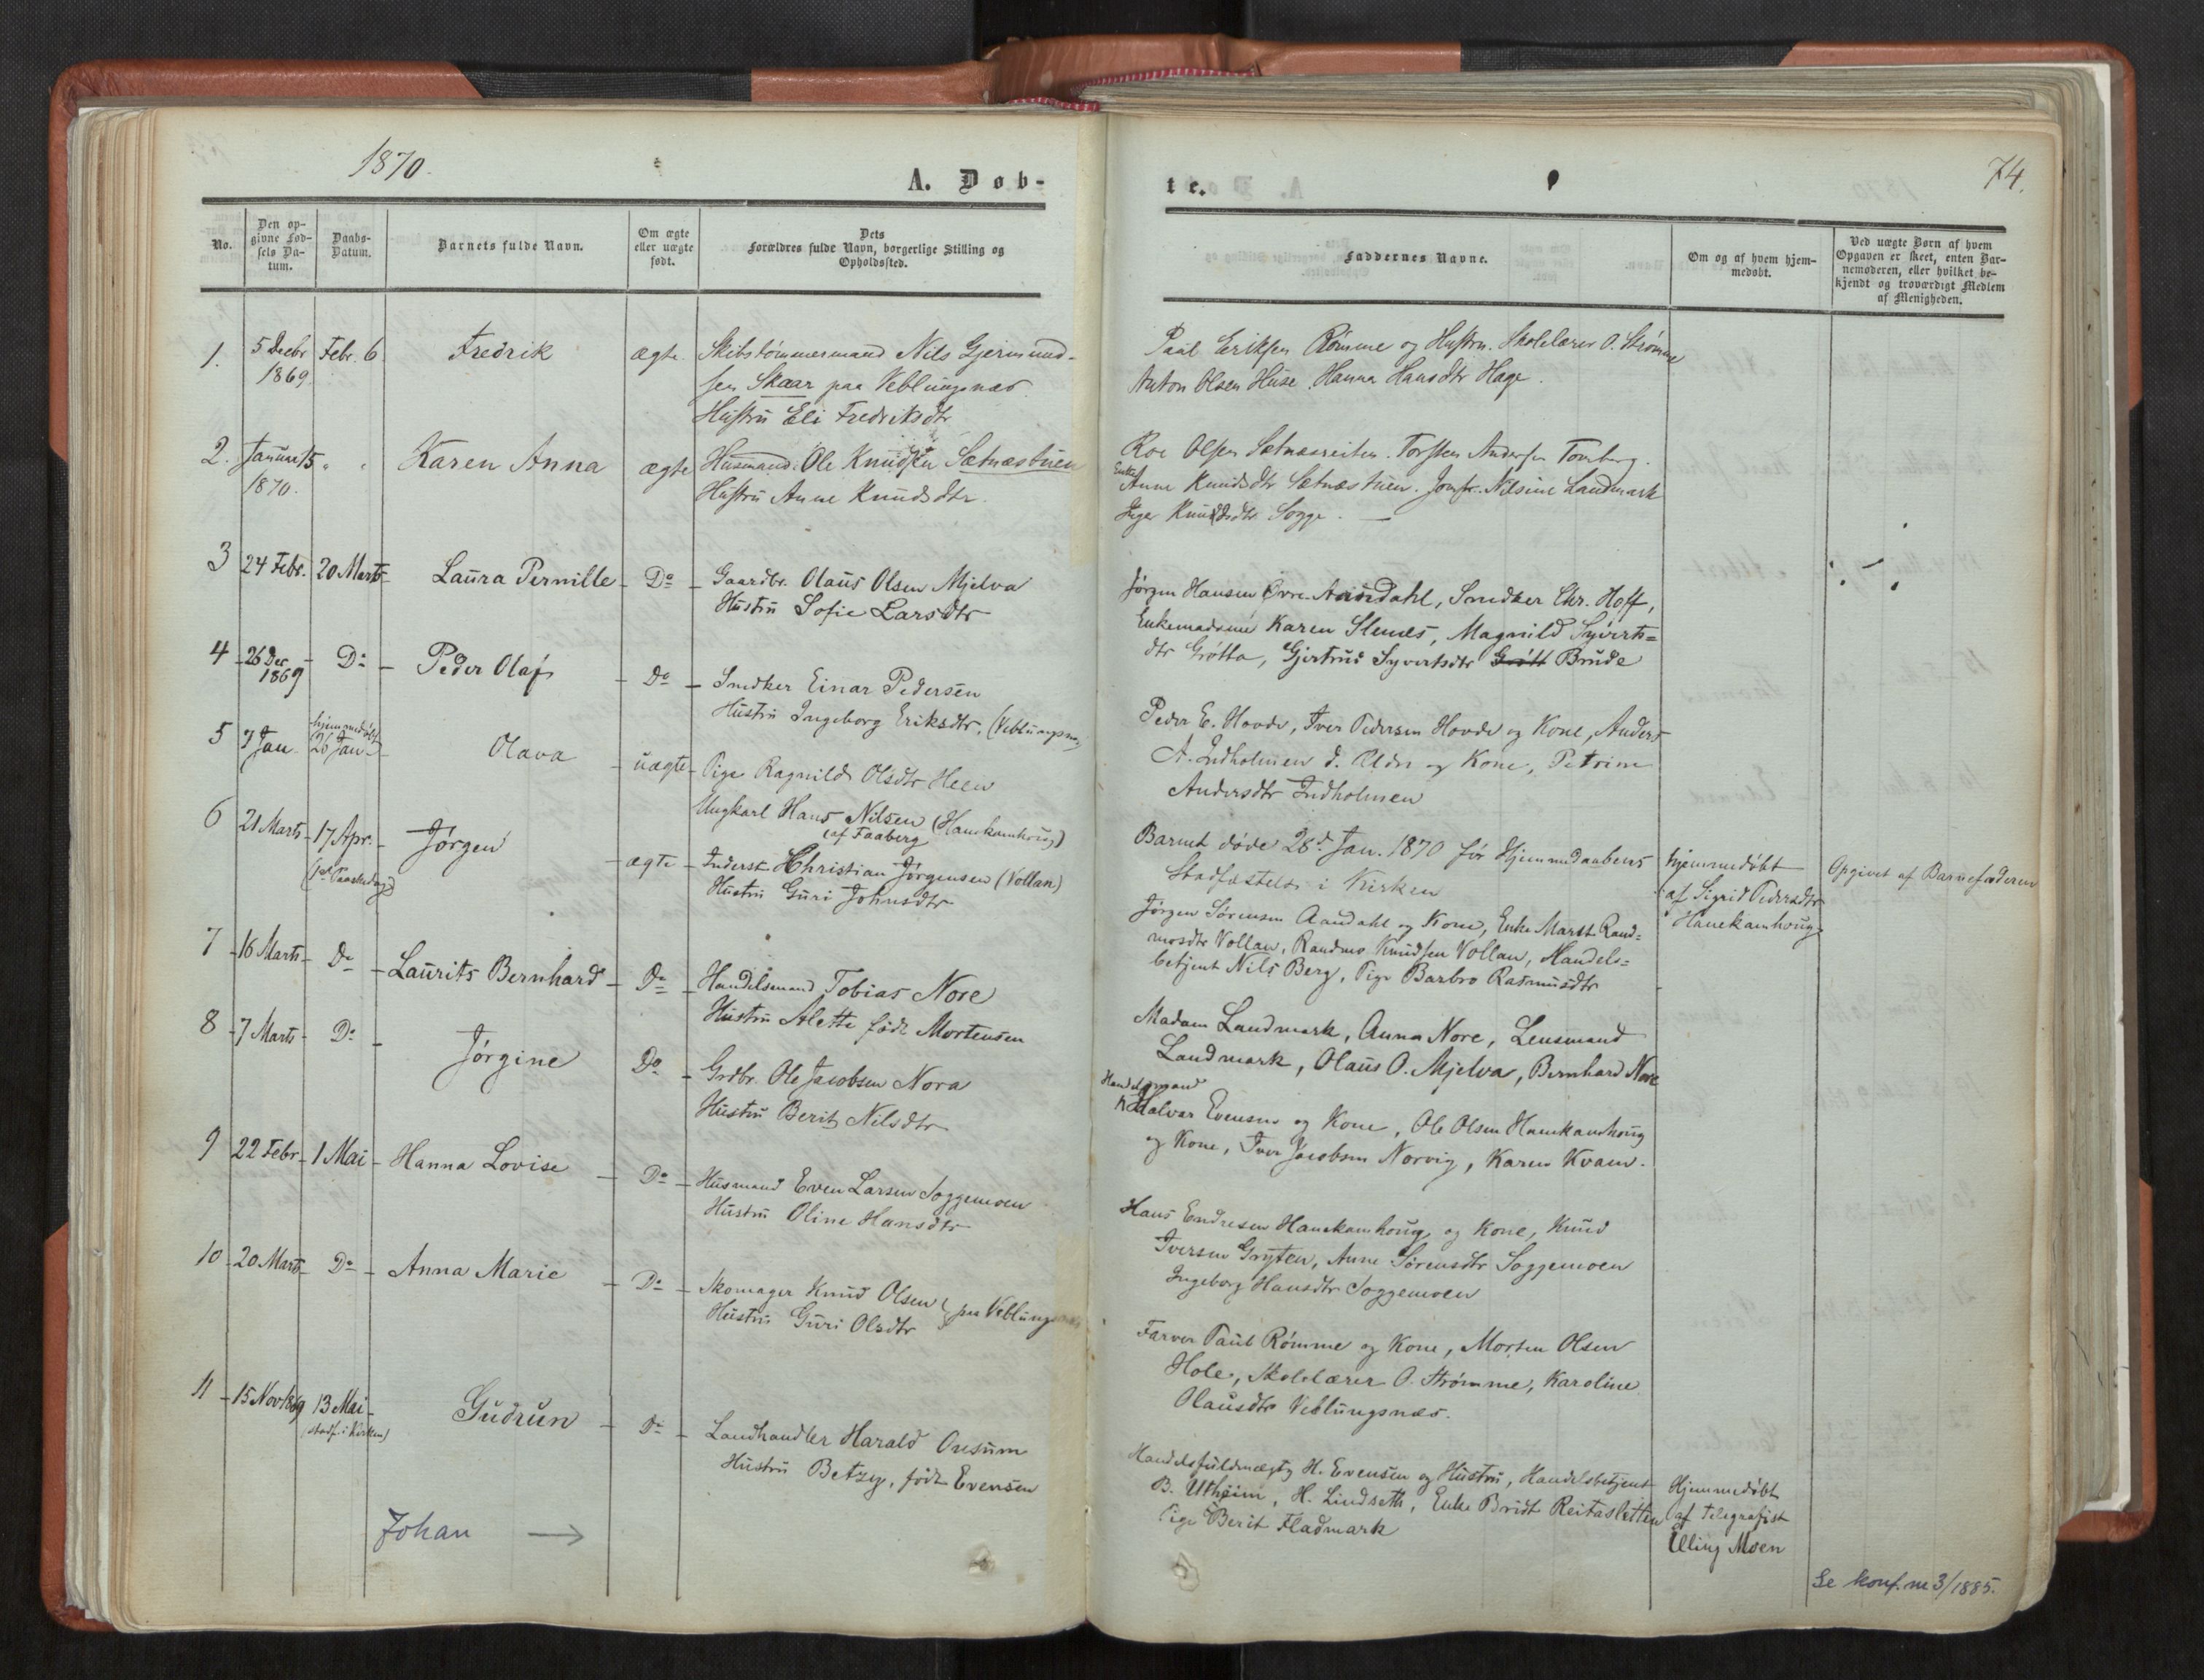 1870.
A. Døb-
No.
Den op-
givne Fød-
sels Da-
tum.
Daabs-
Datum.
Barnets fulde Navn.
Om ægte
eller uægte
født.
Dets
Forældres fulde Navn, borgerlige Stilling og
Opholdssted.
1. 5 Decbr Febr. 6 Fredrik ægte Skibstømmermand Nils Gjermund-
1869. sen Skaar paa Veblungsnæs
Hustru Eli Fredriksdtr
2. Januar 15 " " Karen Anna ægte Husmand Ole Knudsen Sætnæstuen
1870. Hustru Anne Knudsdtr.
3 24 Febr. 20 Marts Laura Pernille Do Gaardbr. Olaus Olsen Mjelva
Hustru Sofie Larsdtr
4 26 Dec Do Peder Olaf Do Snedker Einar Pedersen
1869 Hustru Ingeborg Eriksdtr. (Veblungsnæs
5 7 Jan. hjemmedøbt
26 Jan Olava uægte Pige Ragnild Olsdtr Heen
Ungkarl Hans Nilsen (Hanekamhoug)
(af Faaberg
6 21 Marts 17 Apr. Jørgen ægte Inderst Christian Jørgensen (Vollan)
(1ste Paaskedag) Hustru Guri Johnsdtr
7 16 Marts Do Laurits Bernhard Do Handelsmand Tobias Nore
Hustru Alette født Mortensen
8 7 Marts Do Jørgine Do Grdbr. Ole Jacobsen Nora
Hustru Berit Nilsdtr
9 22 Febr 1 Mai Hanna Lovise Do Husmand Even Larsen Soggemoen
Hustru Oline Hansdtr
10 20 Marts Do Anna Marie Do Skomager Knud Olsen
Hustru Guri Olsdtr } paa Veblungsnæs
11 15 Nov 1869 13 Mai Gudrun Do Landhandler Harald Onsum
(stadf. i Kirken) Hustru Betzy, født Evensen
Johan →
te.
74.
Faddernes Navne.
Om og af hvem hjem-
medøbt.
Ved uægte Børn af hvem
Opgaven er skeet, enten Bar-
nemoderen, eller hvilket be-
kjendt og troværdigt Medlem
af Menigheden.
Paul Eriksen Rømme og Hustru. Skolelærer O. Strømme
Anton Olsen Huse. Hanna Hansdtr Hage.
Roe Olsen Sætnæsreiten. Torsten Andersen Tomberg.
Enke Anne Knudsdtr Sætnæstuen. Jomfr. Nilsine Landmark
Inger Knudsdtr Sogge.
Jørgen Hansen Øvre-Aandahl, Snedker Chr. Hoff,
Enkemadame Karen Stenes, Magnild Syverts=
dtr Grøtta, Gjertrud Syvertsdtr Grøtt Brude
Peder E. Hovde, Iver Pedersen Hovde og Kone, Anders
A. Indholmen d. Ældre og Kone, Petrine
Andersdtr Indholmen
Barnet døde 28d Jan. 1870 før Hjemmedaabens
Stadfæstelse i Kirken
hjemmedøbt
af Sigrid Pedersdtr
Hanekamhoug
Opgivet af Barnefaderen
Jørgen Sørensen Aandahl og Kone, Enke Marit Rand=
mosdtr Vollan, Randmo Knudsen Vollan, Handels=
betjent Nils Berg, Pige Barbro Rasmusdtr
Madam Landmark, Anna Nore, Lensmand
Landmark, Olaus O. Mjelva, Bernhard Nore
Handelsmand
Halvar Evensen og Kone, Ole Olsen Hanekamhoug
og Kone, Iver Jacobsen Norvig, Karen Kvam.
Hans Endresen Hanekamhoug og Kone, Knud
Iversen Gryten, Anne Sørensdtr Soggemoen
Ingeborg Hansdtr Soggemoen
Farver Paul Rømme og Kone, Morten Olsen
Hole, Skolelærer O. Strømme, Karoline
Olausdtr Veblungsnæs.
Handelsfuldmægtig H. Evensen og Hustru, Handelsbetjent
B. Utheim, H. Lindseth, Enke Bridt Reitasletten
Pige Berit Fladmark
Hjemmedøbt
af Telegrafist
Elling Moen
Se konf. nr 3/1885.